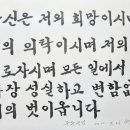 당신은 저의 희망이시며
저의 의탁이시며 저의
위로자시며 모든 일에서
가장 성실하고 변함없
저의 벗이옵니다